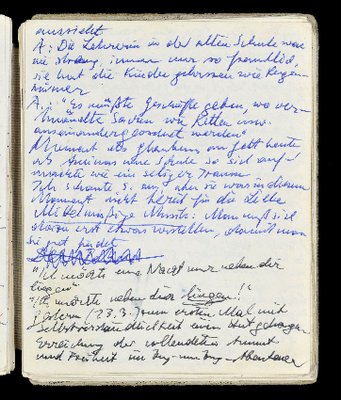 aussieht
A: Die Lehrerin in der alten Schule war
nie streng, immer nur so freundlich,
sie hat die Kinder gelassen wie Regen-
würmer
A.: "Es müßte Geschäfte geben, wo ver-
wunschene Sachen wie Ketten usw.
auseinandergeordnet werden"
Moment des Glaubens an Gott heute
als Amina's neue Schule so sich auf-
machte wie ein seliger Traum
Ich schaute S. an, aber sie war in diesem
Moment nicht bereit für die Liebe
Mittelmäßige Musik: Man muß sich
davon erst etwas vorstellen, damit man
sie gut findet
"Ich möchte eine Nacht nur neben dir
liegen"
"Ich möchte neben dir liegen!"
Gestern (23.3.) zum ersten Mal mit
Selbstverständlichkeit einen Hut getragen
Erreichung der vollendeten Anmut
und Freiheit im Zug-um-Zug-Abenteuer